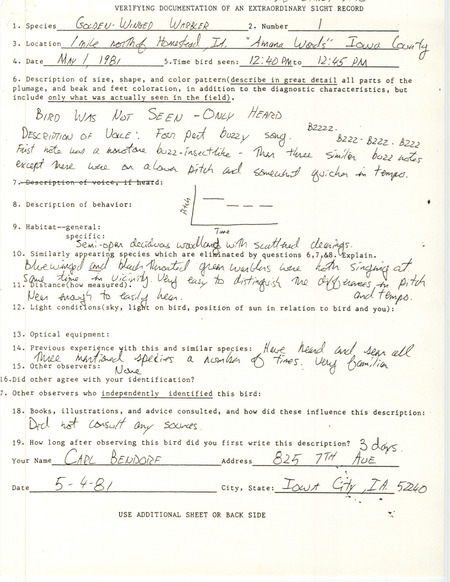 VERIFYING DOCUMENTATION OF AN EXTRAORDINARY SIGHT RECORD
1. Species GOLDEN-WINGED WARBLER 2. Number 1
3. Location 1 mile north of Homestead, IA. "Amana Woods" Iowa County
4. Date MAY 1, 1981 5. Time bird seen: 12:40 PM to 12:45 PM
6. Description of size, shape, and color pattern(describe in great detail all parts of the
plumage, and beak and feet coloration, in addition to the diagnostic characteristics, but
include only what was actually seen in the field).
BIRD WAS NOT SEEN - ONLY HEARD
DESCRIPTION OF VOICE: Four part buzzy song. BZZZZ-
BZZZ-BZZZ-BZZZ
First note was a monotone buzz-insectlike - Then three similar buzz notes
except these were on a lower pitch and somewhat quicker in tempo.
7. Description of voice, if heard:
Pitch
8. Description of behavior:
Time
9. Habitat--general:
specific:
Semi-open deciduous woodland with scattered clearings.
10. Similarly appearing species which are eliminated by questions 6,7,&8. Explain.
Blue winged and black-throated green warblers were both singing at
same time in vicinity. Very easy to distinguish the differences in pitch
and tempo.
11. Distance(how measured):
Near enough to easily hear.
12. Light conditions(sky, light on bird, position of sun in relation to bird and you):
13. Optical equipment:
14. Previous experience with this and similar species: Have heard and seen all
three mentioned species a number of times. Very familiar
15. Other observers: None
16. Did other agree with your identification?
7. Other observers who independently identified this bird:
18. Books, illustrations, and advice consulted, and how did these influence this description:
Did not consult any sources.
19. How long after observing this bird did you first write this description? 3 days.
Your Name CARL BENDORF Address 825 7TH AVE
Date 5-4-81 City, State: IOWA CITY, IA. 52240
USE ADDITIONAL SHEET OR BACK SIDE